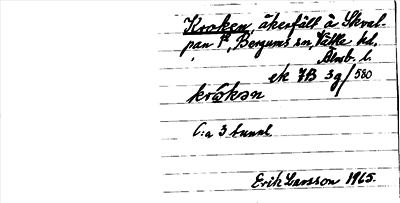 Kroken, åkerfält å Skval-
pan 1⁴, Bergums sn, Vättle hd,
Älvsb. l.
ek JB 3g/580
krókən
C:a 3 tunnl
Erik Larsson 1965.